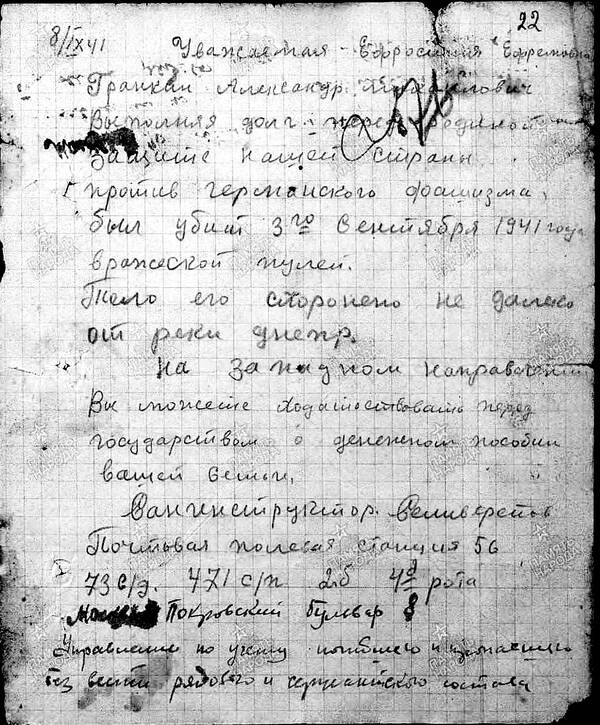 22
8/IX 41 Уважаемая Ефросиния Ефремовна
Гранкан Александр Михайлович
Выполняя долг перед Родиной
Защите нашей страны
против германского фашизма,
был убит 3го Сентября 1941 года
вражеской пулей.
Тело его сторонено не далеко
от реки днепр.
на западном направлении
Вы можете ходатоствовать перед
государством о денежном пособии
вашей семьи,
Санинструктор. Селиверстов
Почтовая полевая станция 56
73 с/д. 471 с/п 2б 4я рота
Покровский бульвар 8
Управление по учету погибшего и пропавшего
без вести рядового и сержантского состава